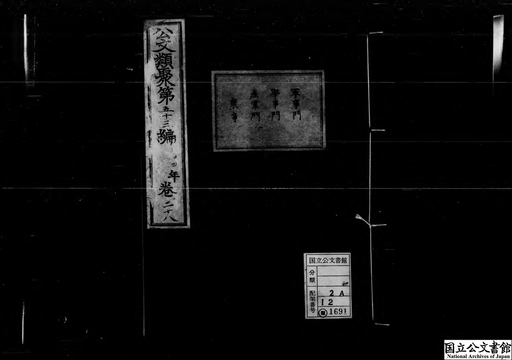 公文類聚第五十三編
年 巻二十八
軍事門
学事門
産業門
国立公文書館
分類
配架番号
2A
12
類1691
国立公文書館
National Archives of Japan